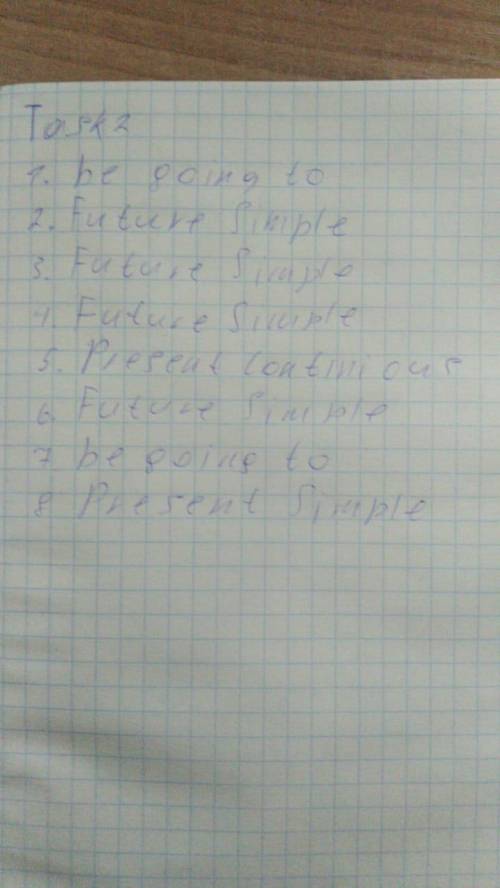 Task 2
1. be going to
2. Future Simple
3. Future Simple
4. Future Simple
5. Present Continious
6. Future Simple
7 be going to
8 Present Simple